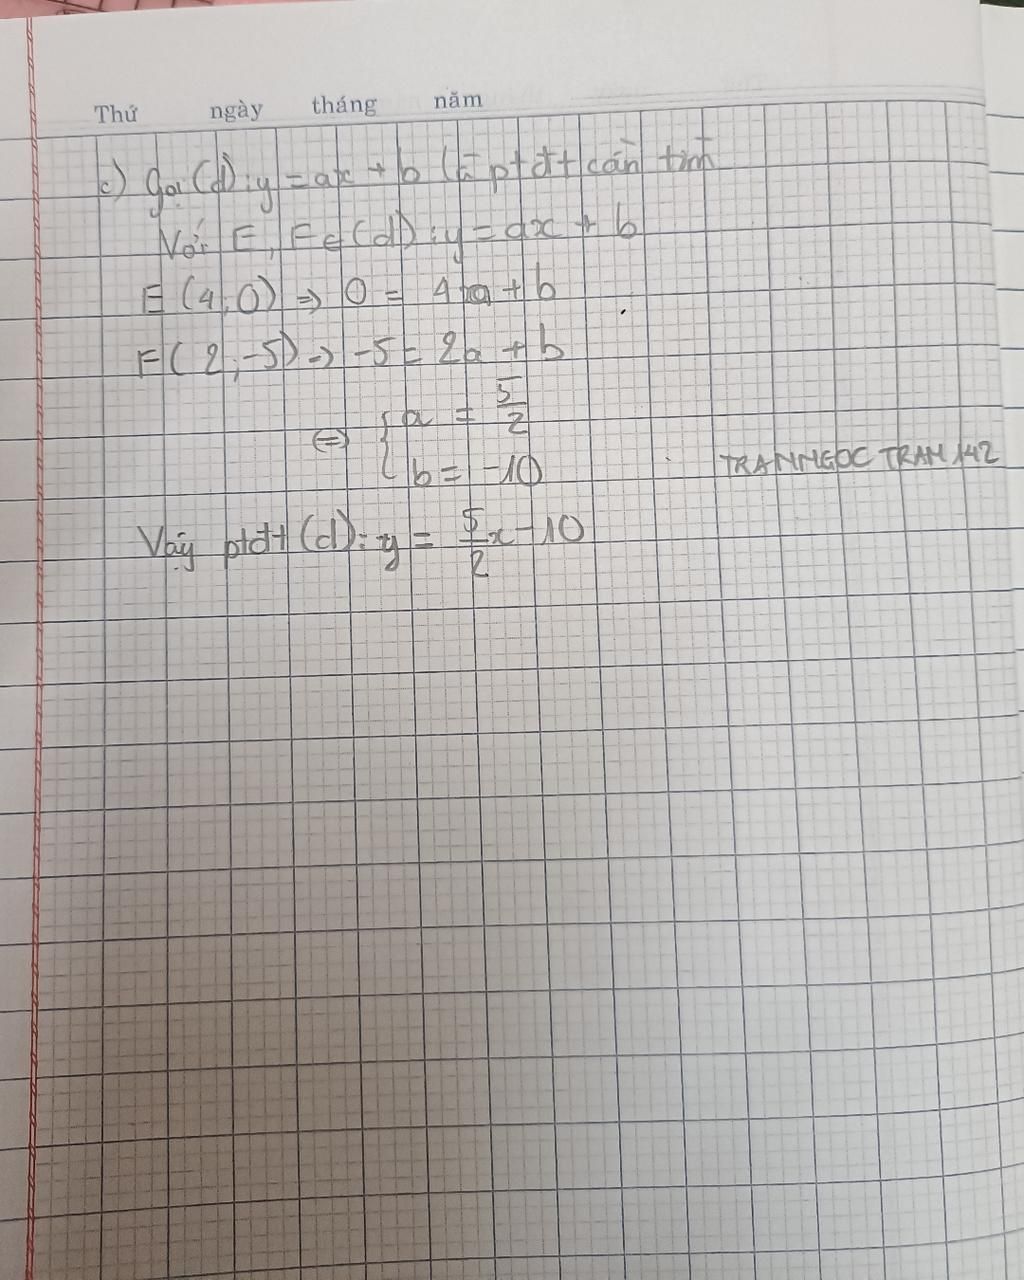 Thứ ngày tháng năm
c) Gọi (d): y = ax + b là ptđt cần tìm
Với E, F ∈ (d): y = ax + b
E (4; 0) => 0 = 4a + b
F (2; -5) => -5 = 2a + b
<=> { a = 5/2
b = -10
TRANNGOC TRAM 142
Vậy ptđt (d): y = 5/2 x - 10